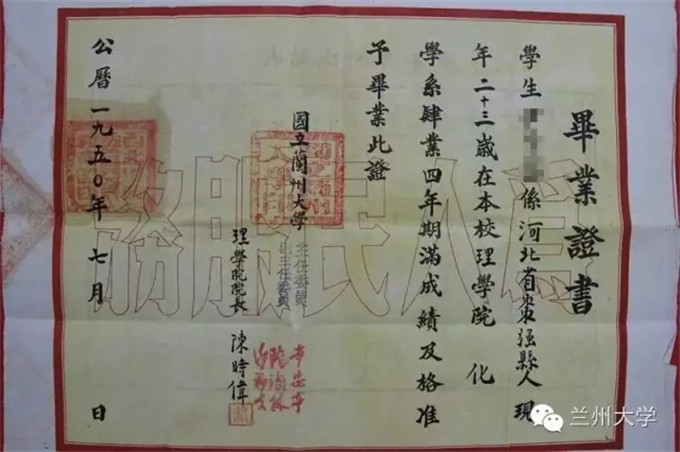 畢業證書
學生係河北省棗强縣人現
年二十三歲在本校理學院化
學系肄業四年期滿成績及格准
予畢業此證
國立蘭州大學
主任委員
副主任委員
辛安亭
理學院院長 陳時偉
公曆一九五〇年七月 日
為人民服務
兰州大学